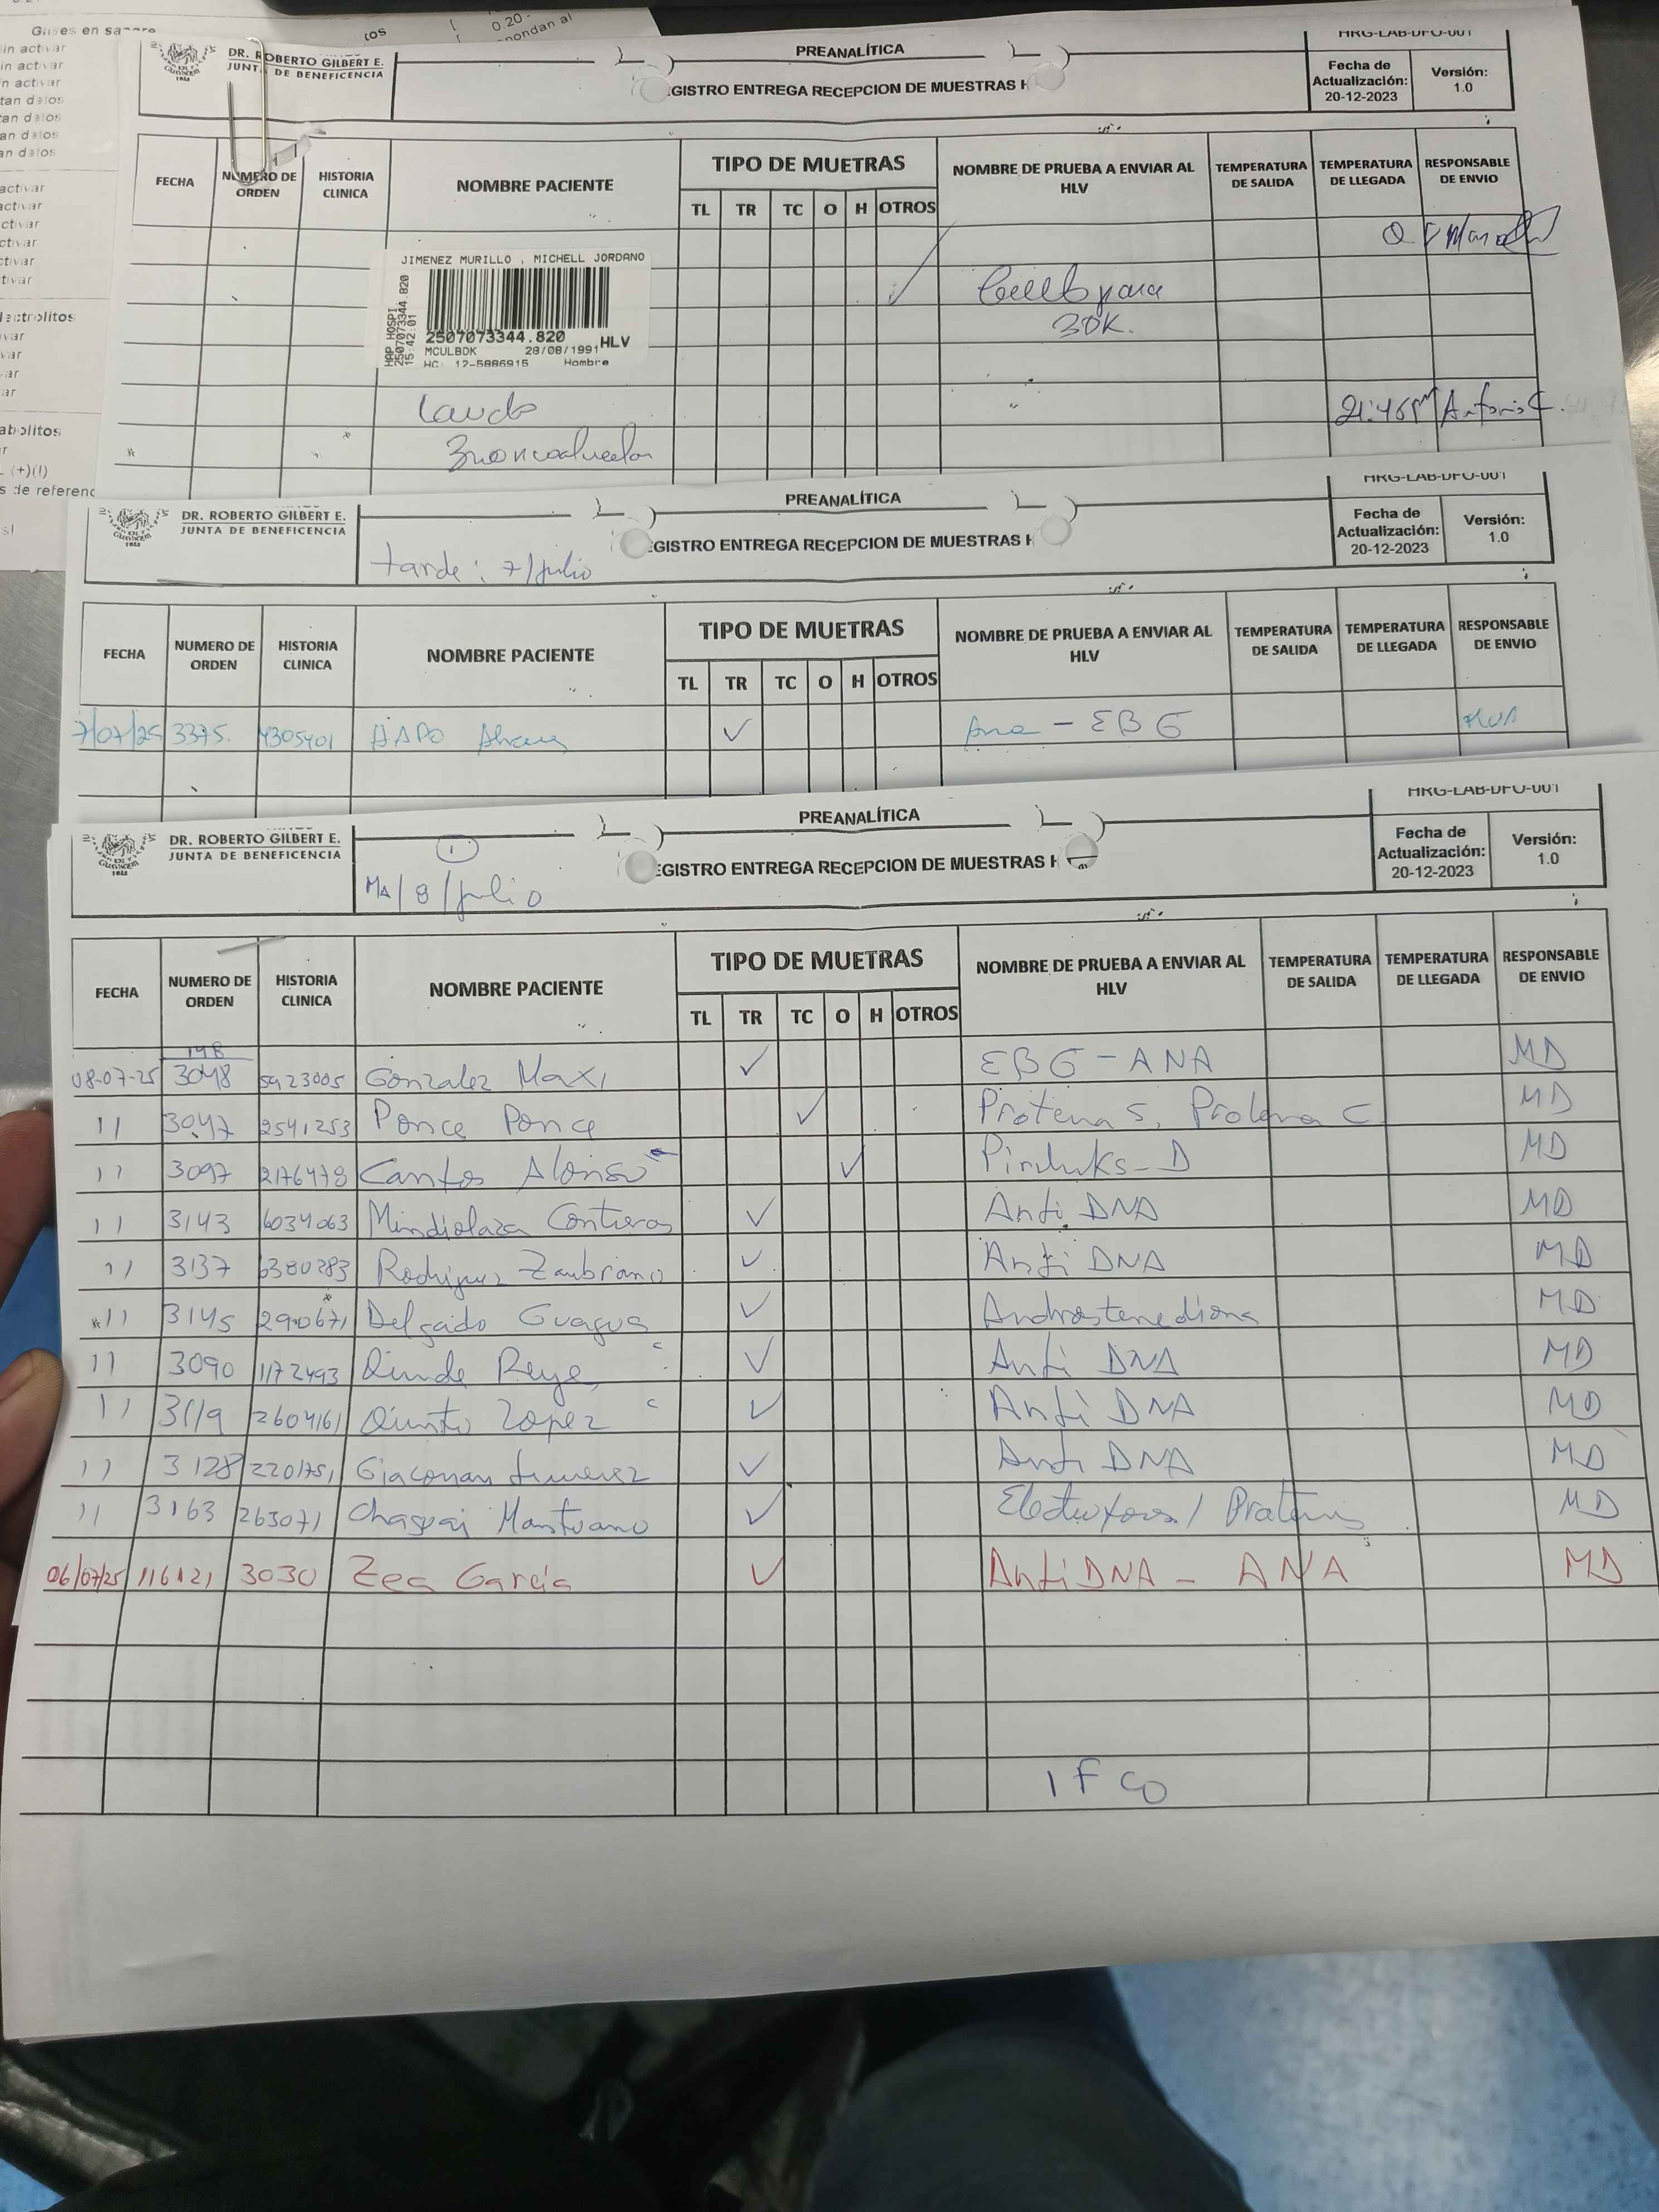 Gases en sangre
in activar
in activar
n activar
tan datos
tan datos
an datos
an datos
activar
activar
ctivar
ctivar
ctivar
tivar
lectrolitos
var
var
ar
ar
abolitos
r
(+)(I)
s de referenc
0.20
ondan al
DR. ROBERTO GILBERT E.
JUNTA DE BENEFICENCIA
GUAYAQUIL
1888
PREANALÍTICA
EGISTRO ENTREGA RECEPCION DE MUESTRAS H
HRG-LAB-DFO-001
Fecha de Actualización: 20-12-2023
Versión: 1.0
FECHA NUMERO DE ORDEN HISTORIA CLINICA NOMBRE PACIENTE TIPO DE MUETRAS NOMBRE DE PRUEBA A ENVIAR AL HLV TEMPERATURA DE SALIDA TEMPERATURA DE LLEGADA RESPONSABLE DE ENVIO
TL TR TC O H OTROS
JIMENEZ MURILLO , MICHELL JORDANO
HAP HOSPI
2507073344.820
15:42:01
2507073344.820 HLV
MCULBDK 28/08/1991
HC: 12-5886915 Hombre
30K.
Lavado
21:45 Antonio
DR. ROBERTO GILBERT E.
JUNTA DE BENEFICENCIA
PREANALÍTICA
EGISTRO ENTREGA RECEPCION DE MUESTRAS H
HRG-LAB-DFO-001
Fecha de Actualización: 20-12-2023
Versión: 1.0
tarde: 7/julio
FECHA NUMERO DE ORDEN HISTORIA CLINICA NOMBRE PACIENTE TIPO DE MUETRAS NOMBRE DE PRUEBA A ENVIAR AL HLV TEMPERATURA DE SALIDA TEMPERATURA DE LLEGADA RESPONSABLE DE ENVIO
TL TR TC O H OTROS
7/07/25 3375. 4305401 ✓ Ana - EBG
DR. ROBERTO GILBERT E.
JUNTA DE BENEFICENCIA
PREANALÍTICA
EGISTRO ENTREGA RECEPCION DE MUESTRAS H
HRG-LAB-DFO-001
Fecha de Actualización: 20-12-2023
Versión: 1.0
1
MA/8/julio
FECHA NUMERO DE ORDEN HISTORIA CLINICA NOMBRE PACIENTE TIPO DE MUETRAS NOMBRE DE PRUEBA A ENVIAR AL HLV TEMPERATURA DE SALIDA TEMPERATURA DE LLEGADA RESPONSABLE DE ENVIO
TL TR TC O H OTROS
148
08-07-25 3048 5923005 Gonzalez Maxi ✓ EBG - ANA MD
11 3047 2541253 Ponce Ponce ✓ Proteina S, Proteina C MD
11 3097 2176478 Cantos Alonso ✓ MD
11 3143 6034063 Mindiolaza Contreras ✓ Anti DNA MD
11 3137 6380283 Rodriguez Zambrano ✓ Anti DNA MD
11 3145 290671 Delgado Guagua ✓ Androstenediona MD
11 3090 1172493 Quinde Reye ✓ Anti DNA MD
11 3119 2604161 Quinto Lopez ✓ Anti DNA MD
11 3128 2201751 Jimenez ✓ Anti DNA MD
11 3163 263071 Mantuano ✓ MD
06/07/25 116121 3030 Zea Garcia ✓ Anti DNA - ANA MD